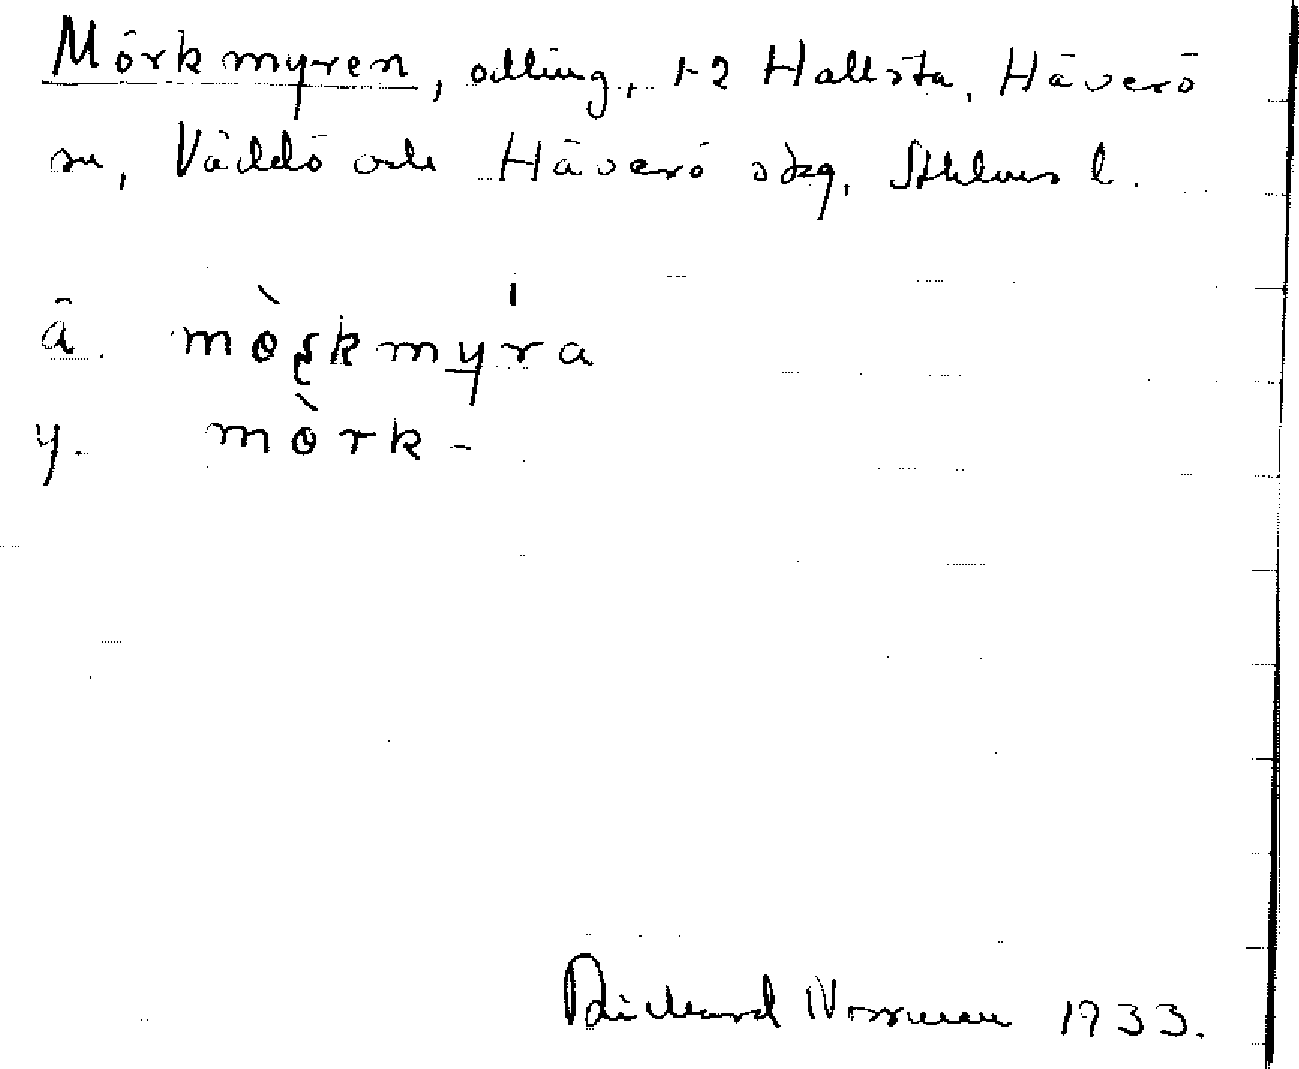 Mörkmyren, odling, 1-2 Hallsta, Häverö
sn, Väddö och Häverö skg, Sthlms l.
ä. mö̀rkmýra
y. mö̀rk-
Rickard Norrman 1933.